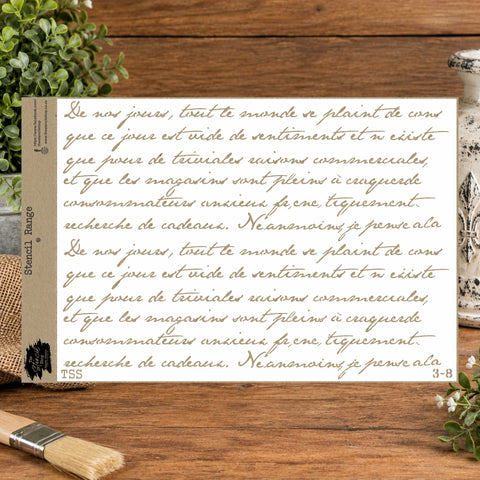 De nos jours, tout le monde se plaint de cons
que ce jour est vide de sentiments et n existe
que pour de triviales raisons commerciales,
et que les magasins sont pleins à craquerde
consommateurs anxieux fr,ene,tiquement.
recherche de cadeaux. Neanmoins,je pense ala
De nos jours, tout le monde se plaint de cons
que ce jour est vide de sentiments et n existe
que pour de triviales raisons commerciales,
et que les magasins sont pleins à craquerde
consommateurs anxieux fr,ene,tiquement.
recherche de cadeaux. Neanmoins,je pense ala
TSS 3-8
Stencil Range